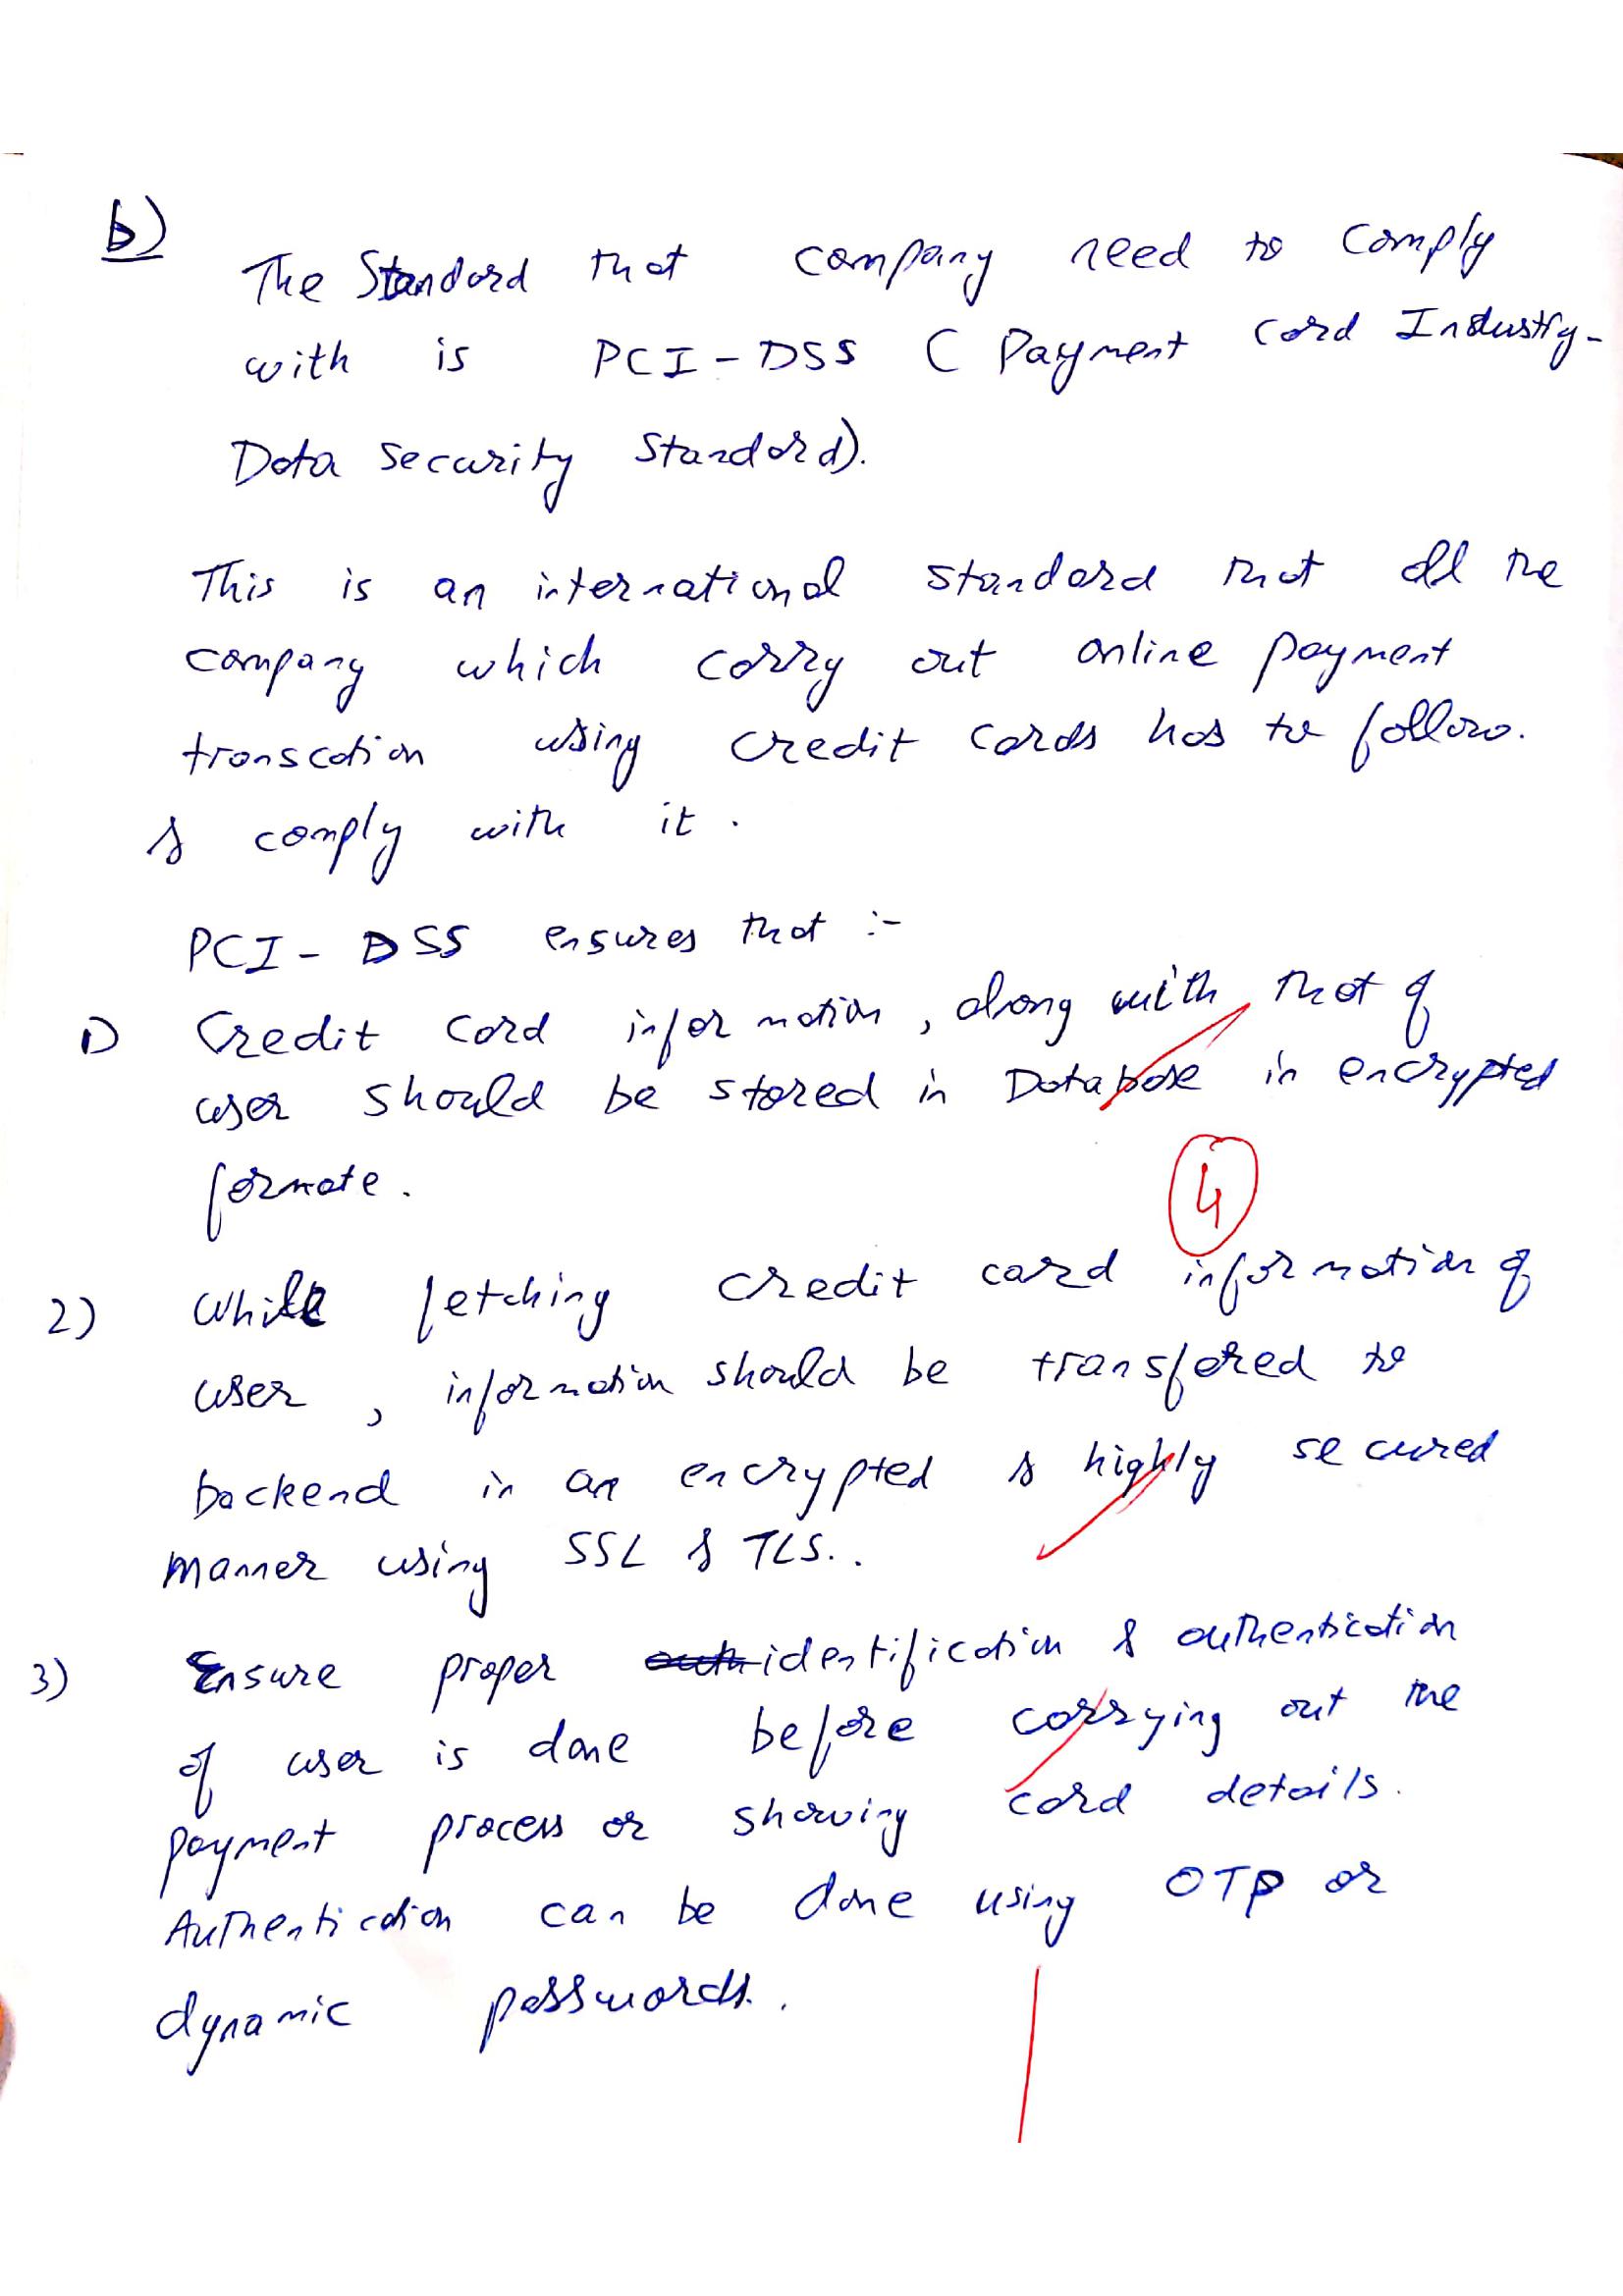 b)
The Standard that company need to comply
with is PCI-DSS ( Payment Card Industry-
Data Security Standard).
This is an international standard that all the
company which carry out online payment
transcation using credit cards has to follow.
& comply with it.
PCI-DSS ensures that :-
1) Credit card information, along with that of
user should be stored in Database in encrypted
formate.
4
2) While fetching credit card information of
user, information should be transfered to
backend in an encrypted & highly secured
manner using SSL & TLS..
3) Ensure proper identification & authentication
of user is done before carrying out the
payment process or showing card details.
Authentication can be done using OTP or
dynamic passwords.